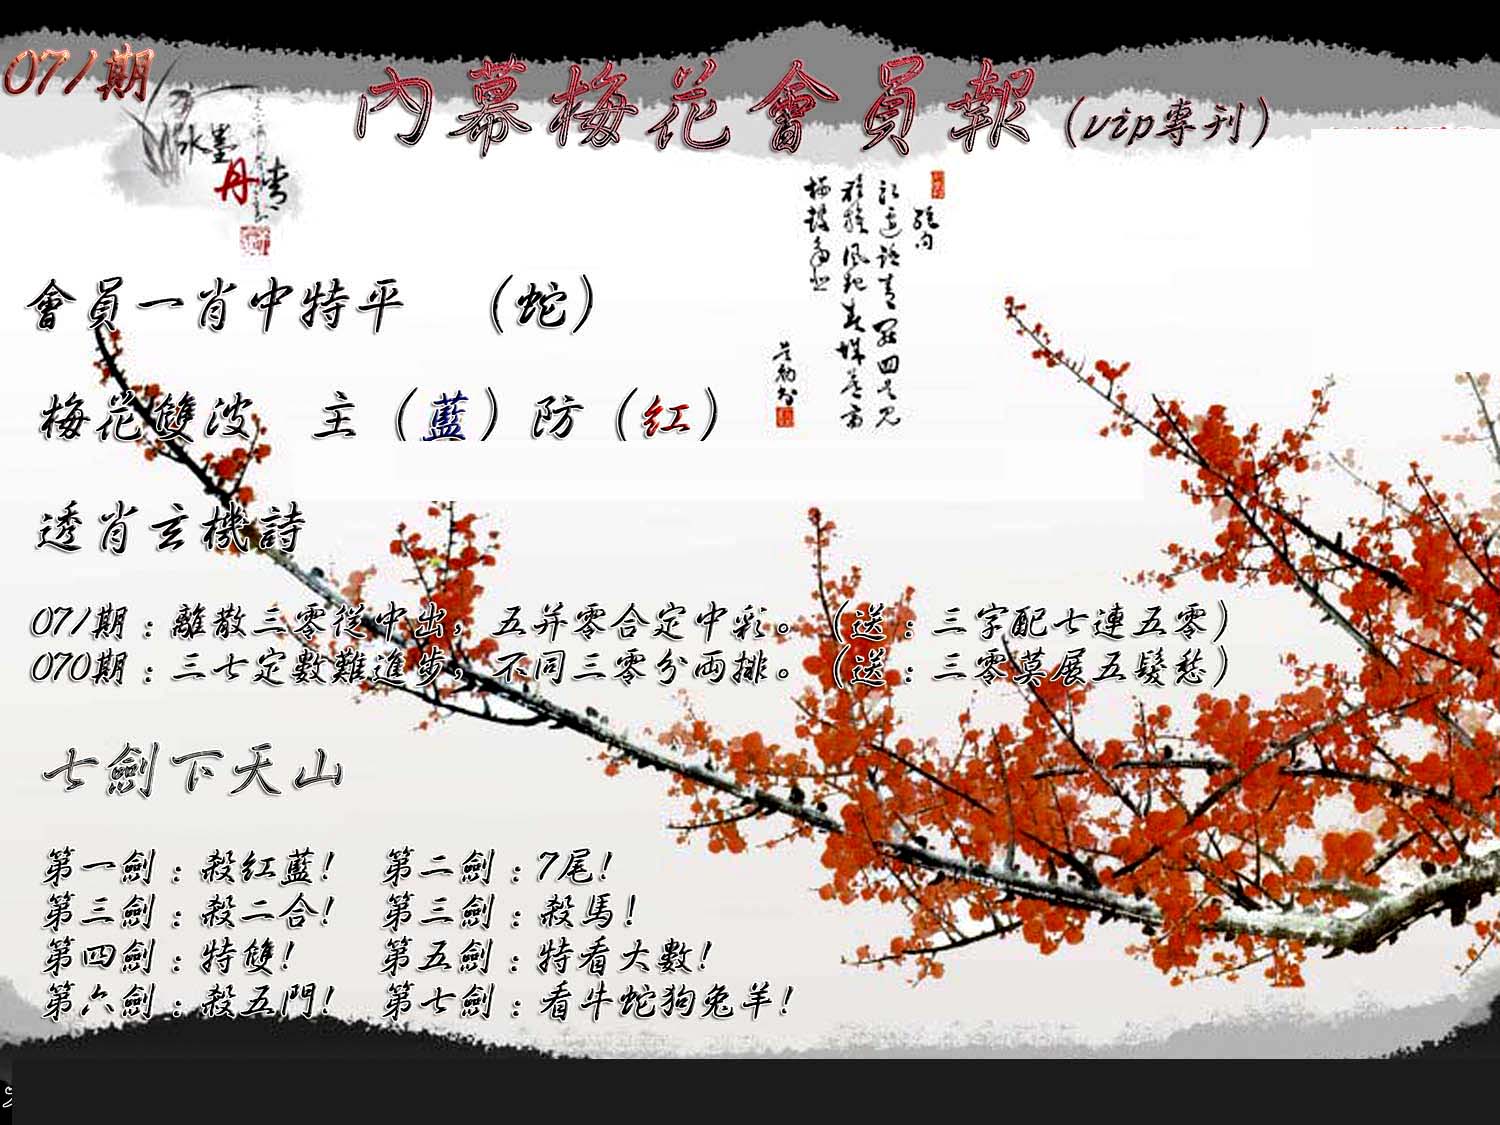 071期
內幕梅花會員報（vip專刊）
水墨
丹青
會員一肖中特平　（蛇）
梅花雙波　主（藍）防（紅）
透肖玄機詩
071期：離散三零從中出，五并零合定中彩。（送：三字配七連五零）
070期：三七定數難進步，不同三零分兩排。（送：三零莫展五鬚愁）
七劍下天山
第一劍：殺紅藍！　第二劍：7尾！
第三劍：殺二合！　第三劍：殺馬！
第四劍：特雙！　第五劍：特看大數！
第六劍：殺五門！　第七劍：看牛蛇狗兔羊！